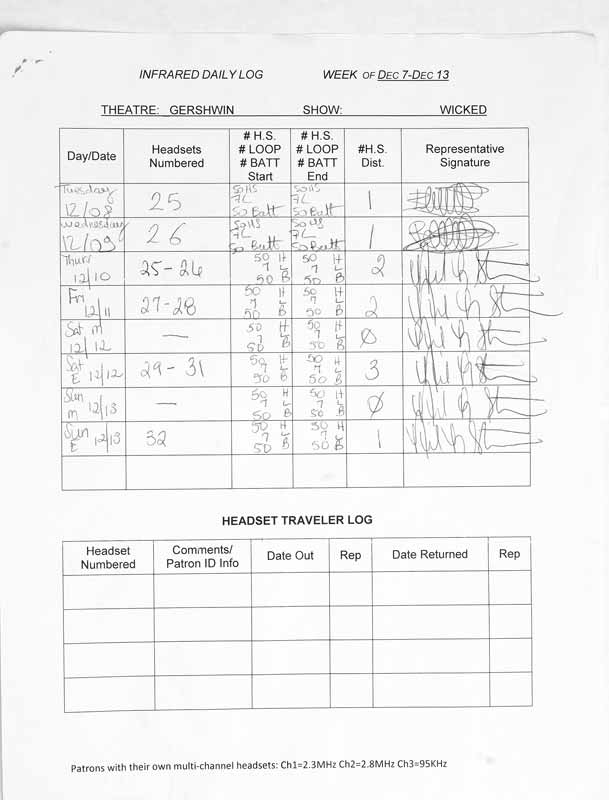 INFRARED DAILY LOG WEEK OF DEC 7-DEC 13
THEATRE: GERSHWIN SHOW: WICKED
Day/Date Headsets Numbered # H.S. # LOOP # BATT Start # H.S. # LOOP # BATT End #H.S. Dist. Representative Signature
Tuesday 12/08 25 50 HS 7L 50 Batt 50 HS 7L 50 Batt 1
Wednesday 12/09 26 50 HS 7L 50 Batt 50 HS 7L 50 Batt 1
Thurs 12/10 25-26 50 H 7 L 50 B 50 H 7 L 50 B 2
Fri 12/11 27-28 50 H 7 L 50 B 50 H 7 L 50 B 2
Sat m 12/12 — 50 H 7 L 50 B 50 H 7 L 50 B Ø
Sat E 12/12 29-31 50 H 7 L 50 B 50 H 7 L 50 B 3
Sun m 12/13 — 50 H 7 L 50 B 50 H 7 L 50 B Ø
Sun E 12/13 32 50 H 7 L 50 B 50 H 7 L 50 B 1
HEADSET TRAVELER LOG
Headset Numbered Comments/ Patron ID Info Date Out Rep Date Returned Rep
Patrons with their own multi-channel headsets: Ch1=2.3MHz Ch2=2.8MHz Ch3=95KHz